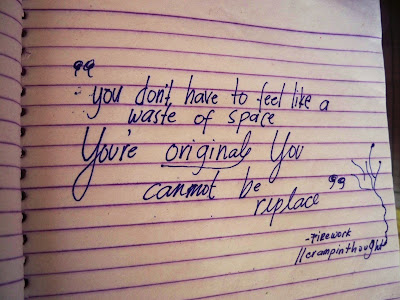 " you don't have to feel like a
waste of space
You're original, You
cannot be
replace "
-Firework
//crampinthought